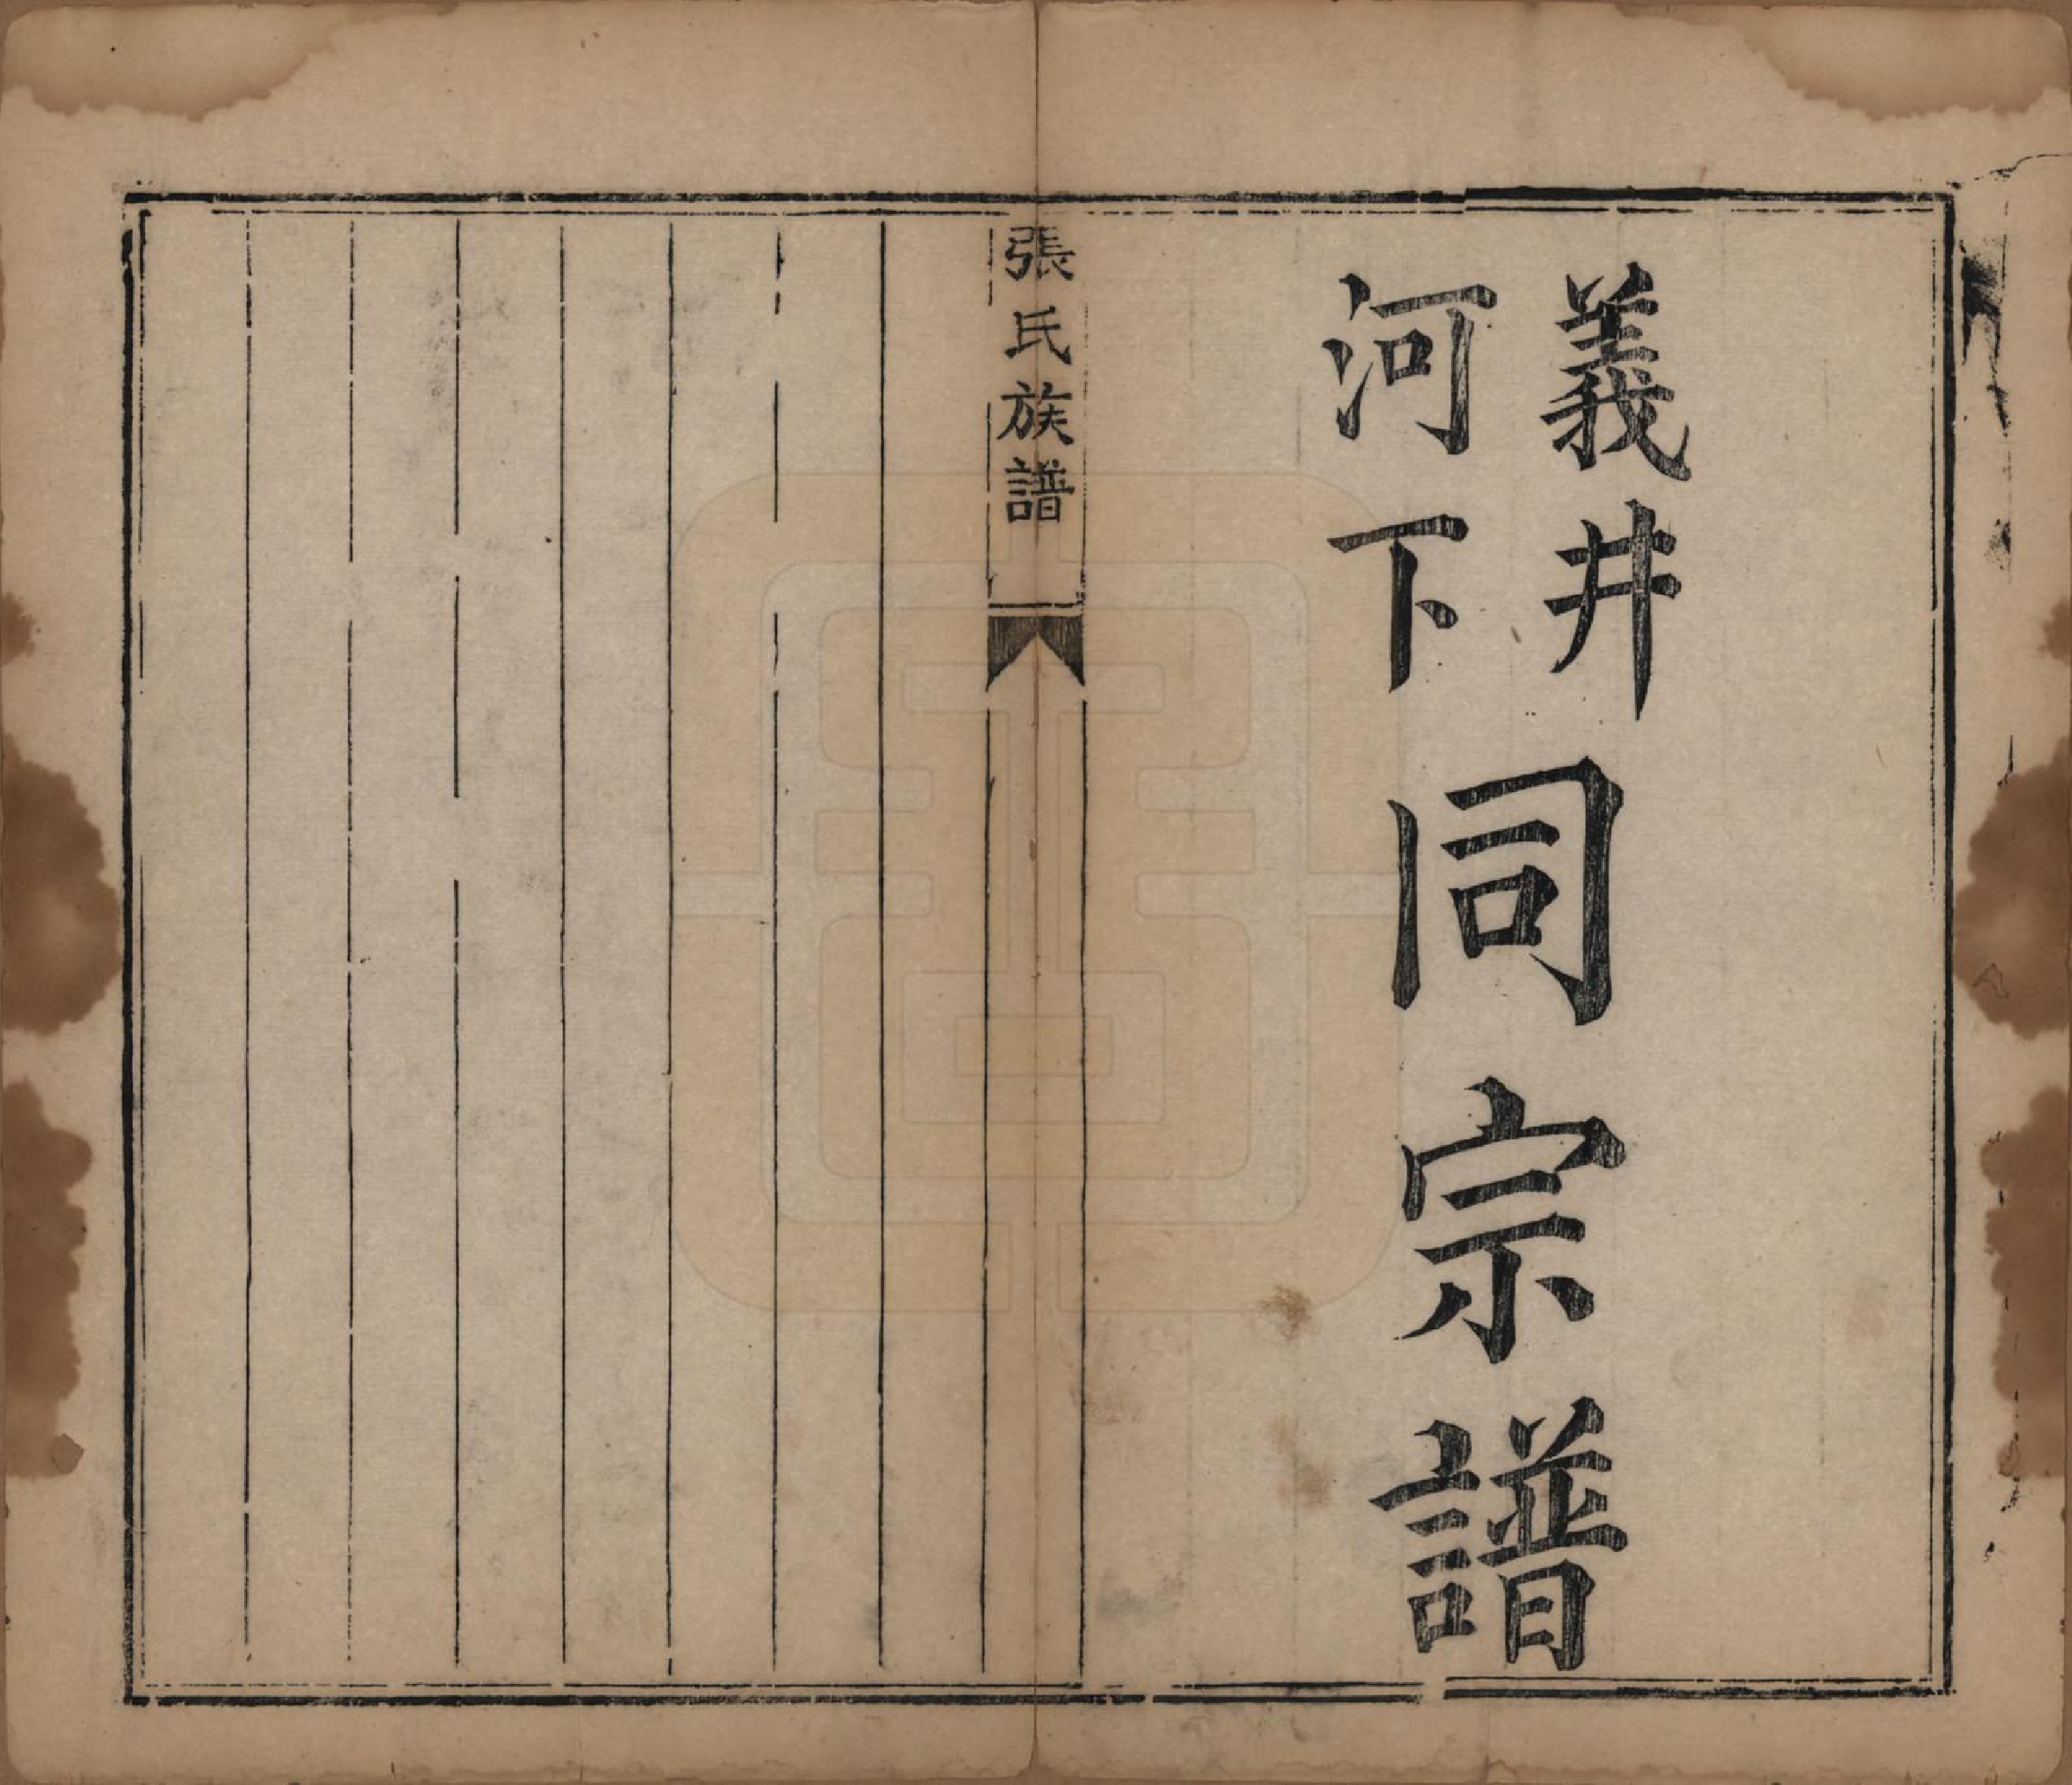 義井
河下
同宗譜
張氏族譜